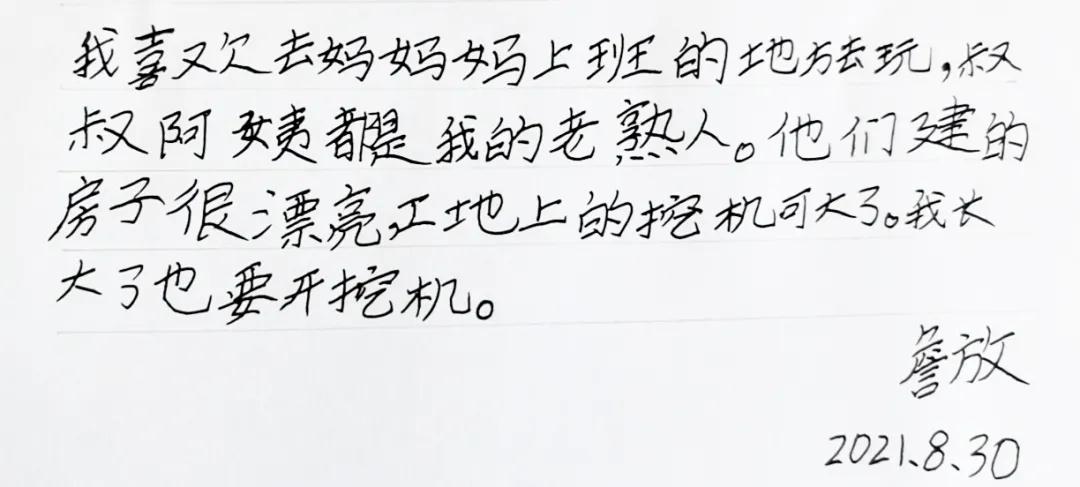 我喜欢去妈妈妈上班的地方去玩,叔
叔阿姨都是我的老熟人。他们建的
房子很漂亮,工地上的挖机可大了。我长
大了也要开挖机。
詹放
2021.8.30